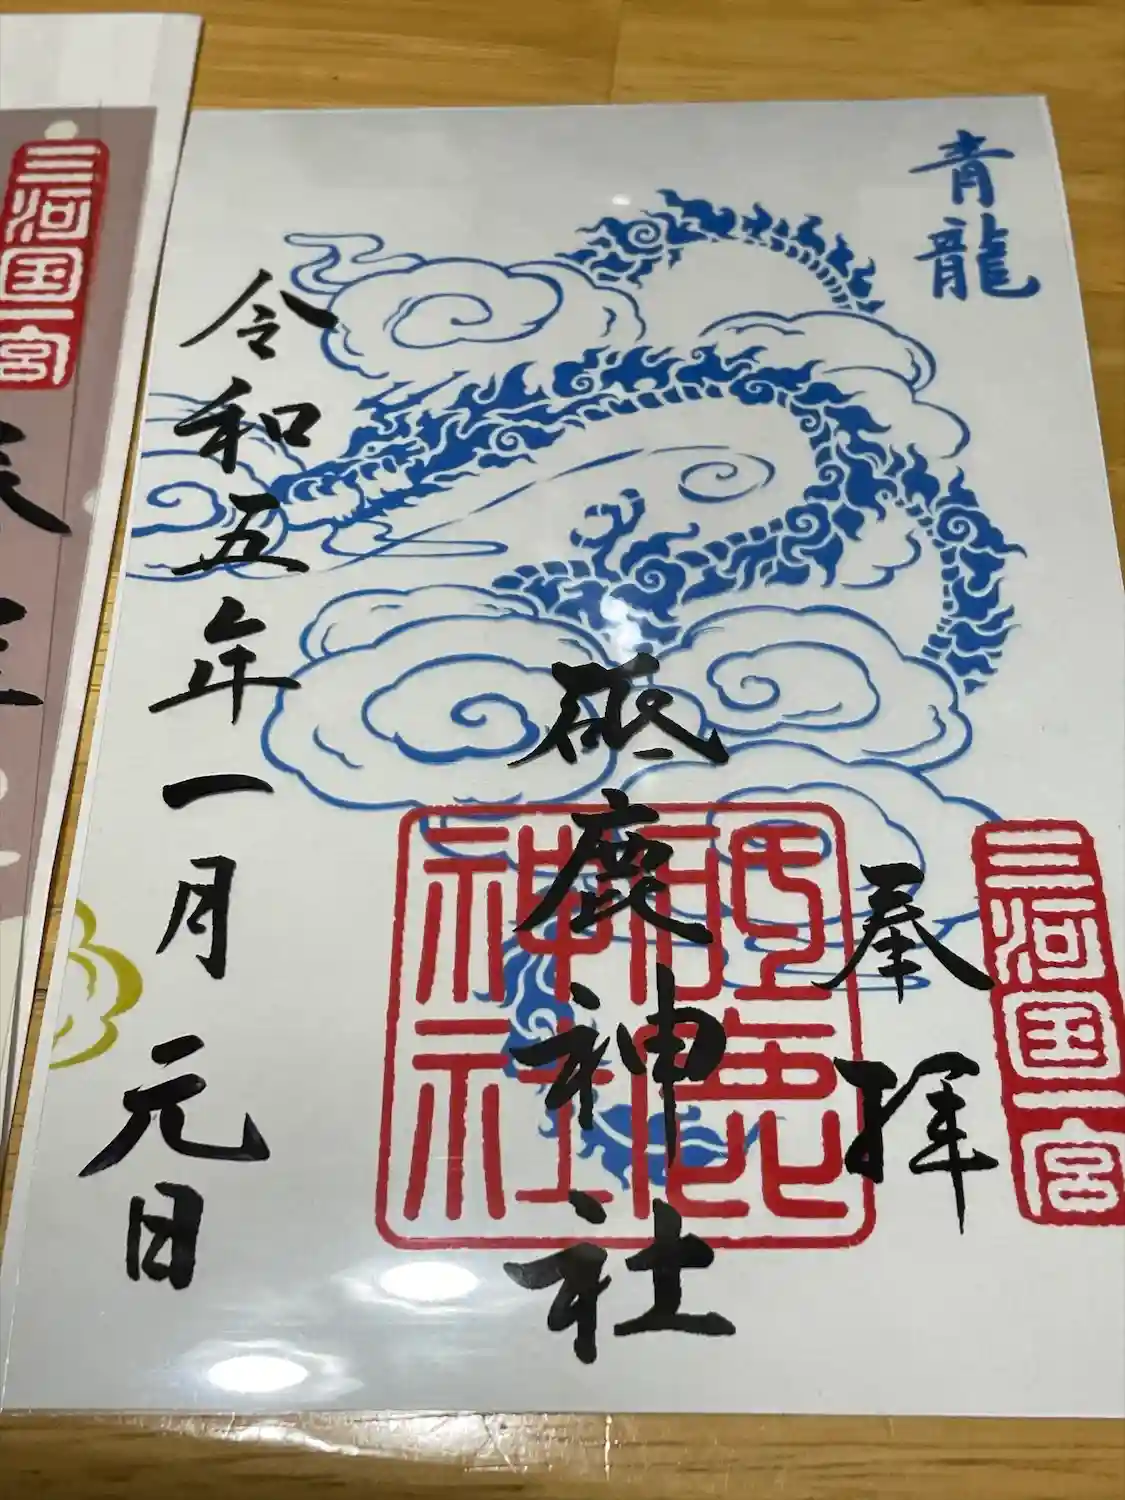 青龍
三河国一宮
奉拝
砥鹿神社
砥鹿神社
令和五年一月元日
三河国一宮